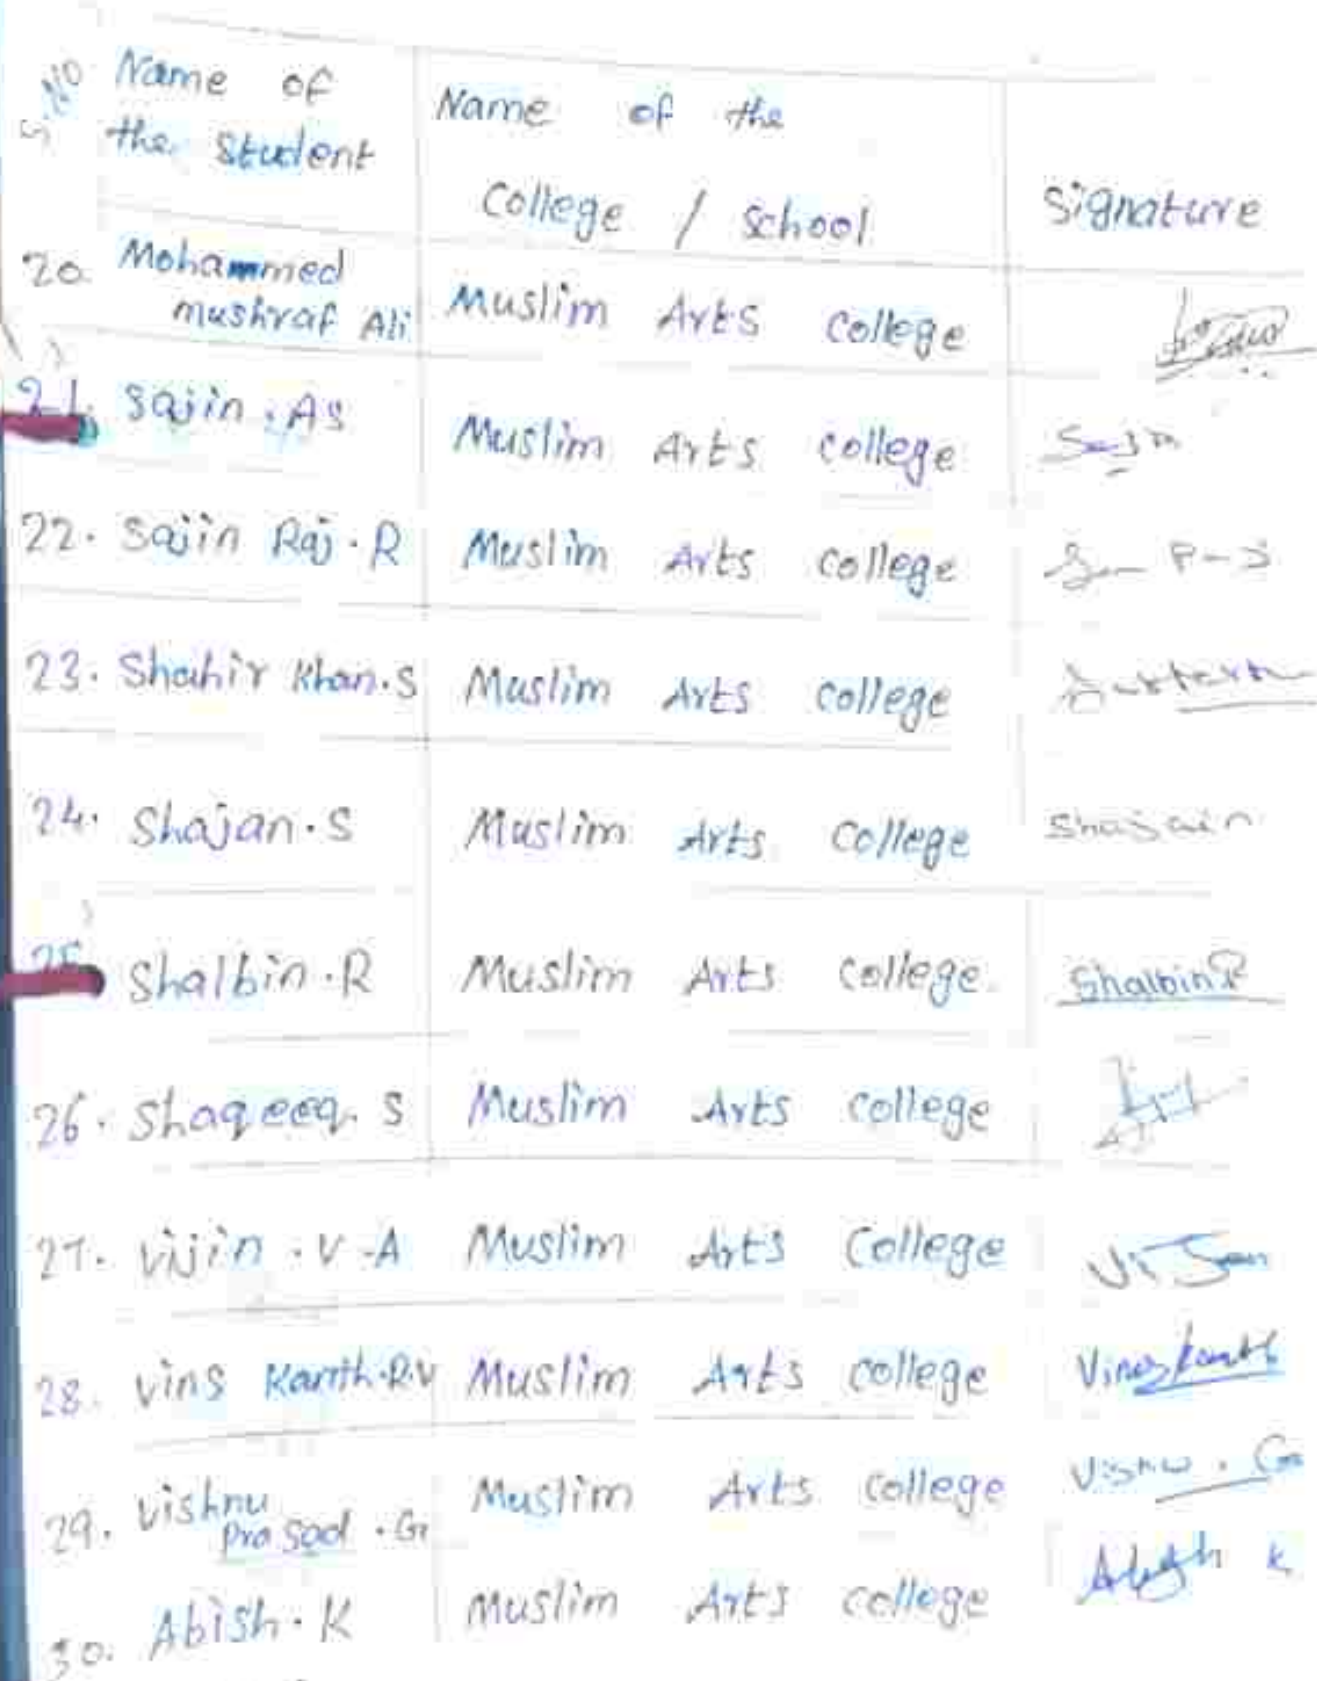 S.NO Name of the Student Name of the College / School Signature
20. Mohammed mushraf Ali Muslim Arts College
21. Sajin . AS Muslim Arts college Sajin
22. Sajin Raj . R Muslim Arts college
23. Shahir Khan . S Muslim Arts college
24. Shajan . S Muslim Arts College Shajain
25. Shalbin . R Muslim Arts college Shalbin R
26. Shaqeeq . S Muslim Arts college
27. Vijin . V . A Muslim Arts College
28. Vins Kanth . R.V Muslim Arts college
29. Vishnu Prasad . G Muslim Arts College Vishnu . G
30. Abish . K Muslim Arts college Abish K